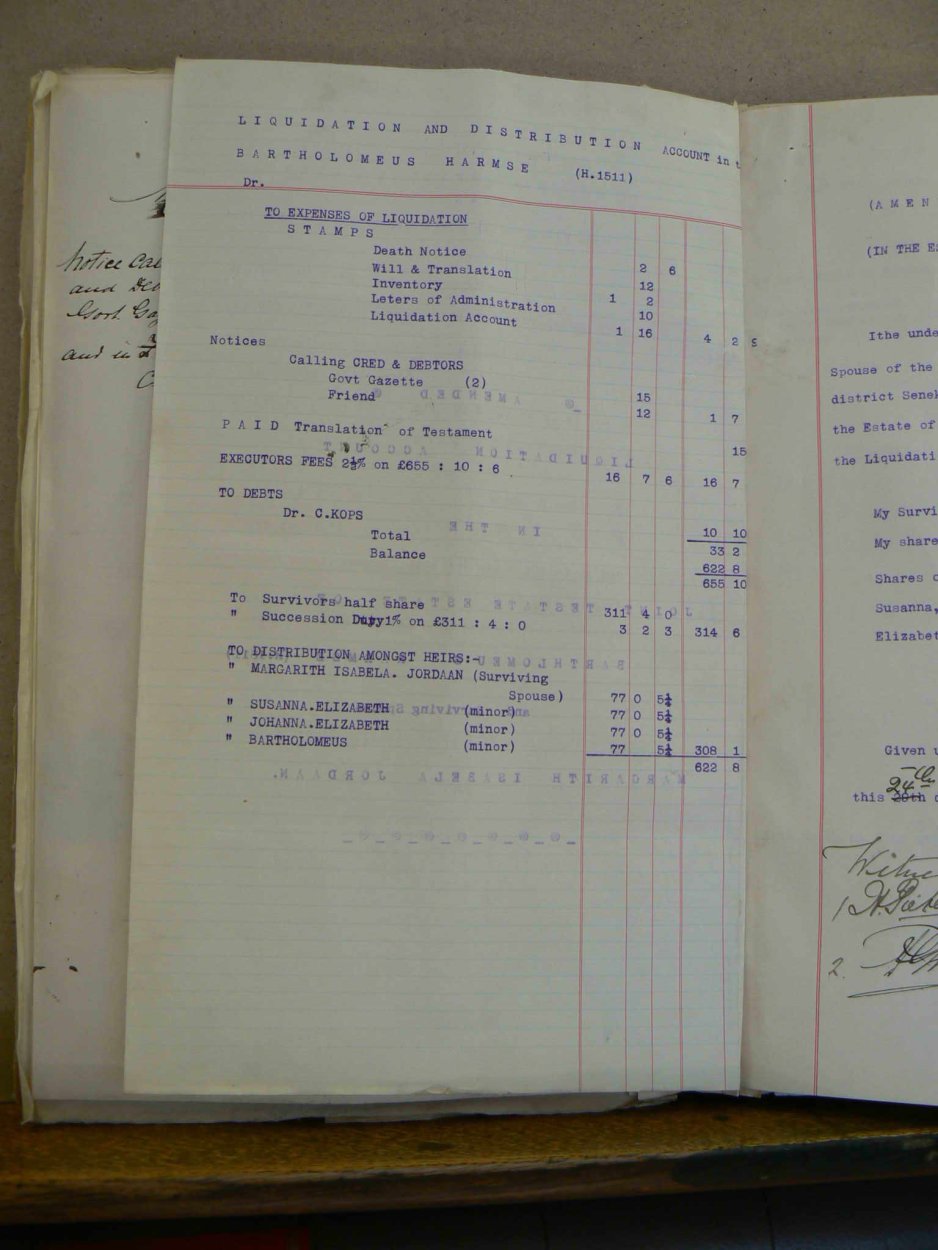 LIQUIDATION AND DISTRIBUTION ACCOUNT in t
BARTHOLOMEUS HARMSE (H.1511)
Dr.
TO EXPENSES OF LIQUIDATION
STAMPS
Death Notice
Will & Translation 2 6
Inventory 12
Leters of Administration 1 2
Liquidation Account 10
1 16 4 2 9
Notices
Calling CRED & DEBTORS
Govt Gazette (2)
Friend 15
12 1 7
PAID Translation of Testament
15
EXECUTORS FEES 2½% on £655 : 10 : 6
16 7 6 16 7
TO DEBTS
Dr. C.KOPS
Total 10 10
Balance 33 2
622 8
655 10
To Survivors half share 311 4 0
" Succession Duty 1% on £311 : 4 : 0 3 2 3 314 6
TO DISTRIBUTION AMONGST HEIRS:-
" MARGARITH ISABELA. JORDAAN (Surviving
Spouse) 77 0 5¼
" SUSANNA.ELIZABETH (minor) 77 0 5¼
" JOHANNA.ELIZABETH (minor) 77 0 5¼
" BARTHOLOMEUS (minor) 77 5¼ 308 1
622 8
Notice Cal
and Deb
Govt Gaz
and in
(AMEN
(IN THE E
Ithe unde
Spouse of the
district Senek
the Estate of
the Liquidati
My Survi
My share
Shares o
Susanna,
Elizabet
Given u
24th
this 29th d
Witne
1
2.